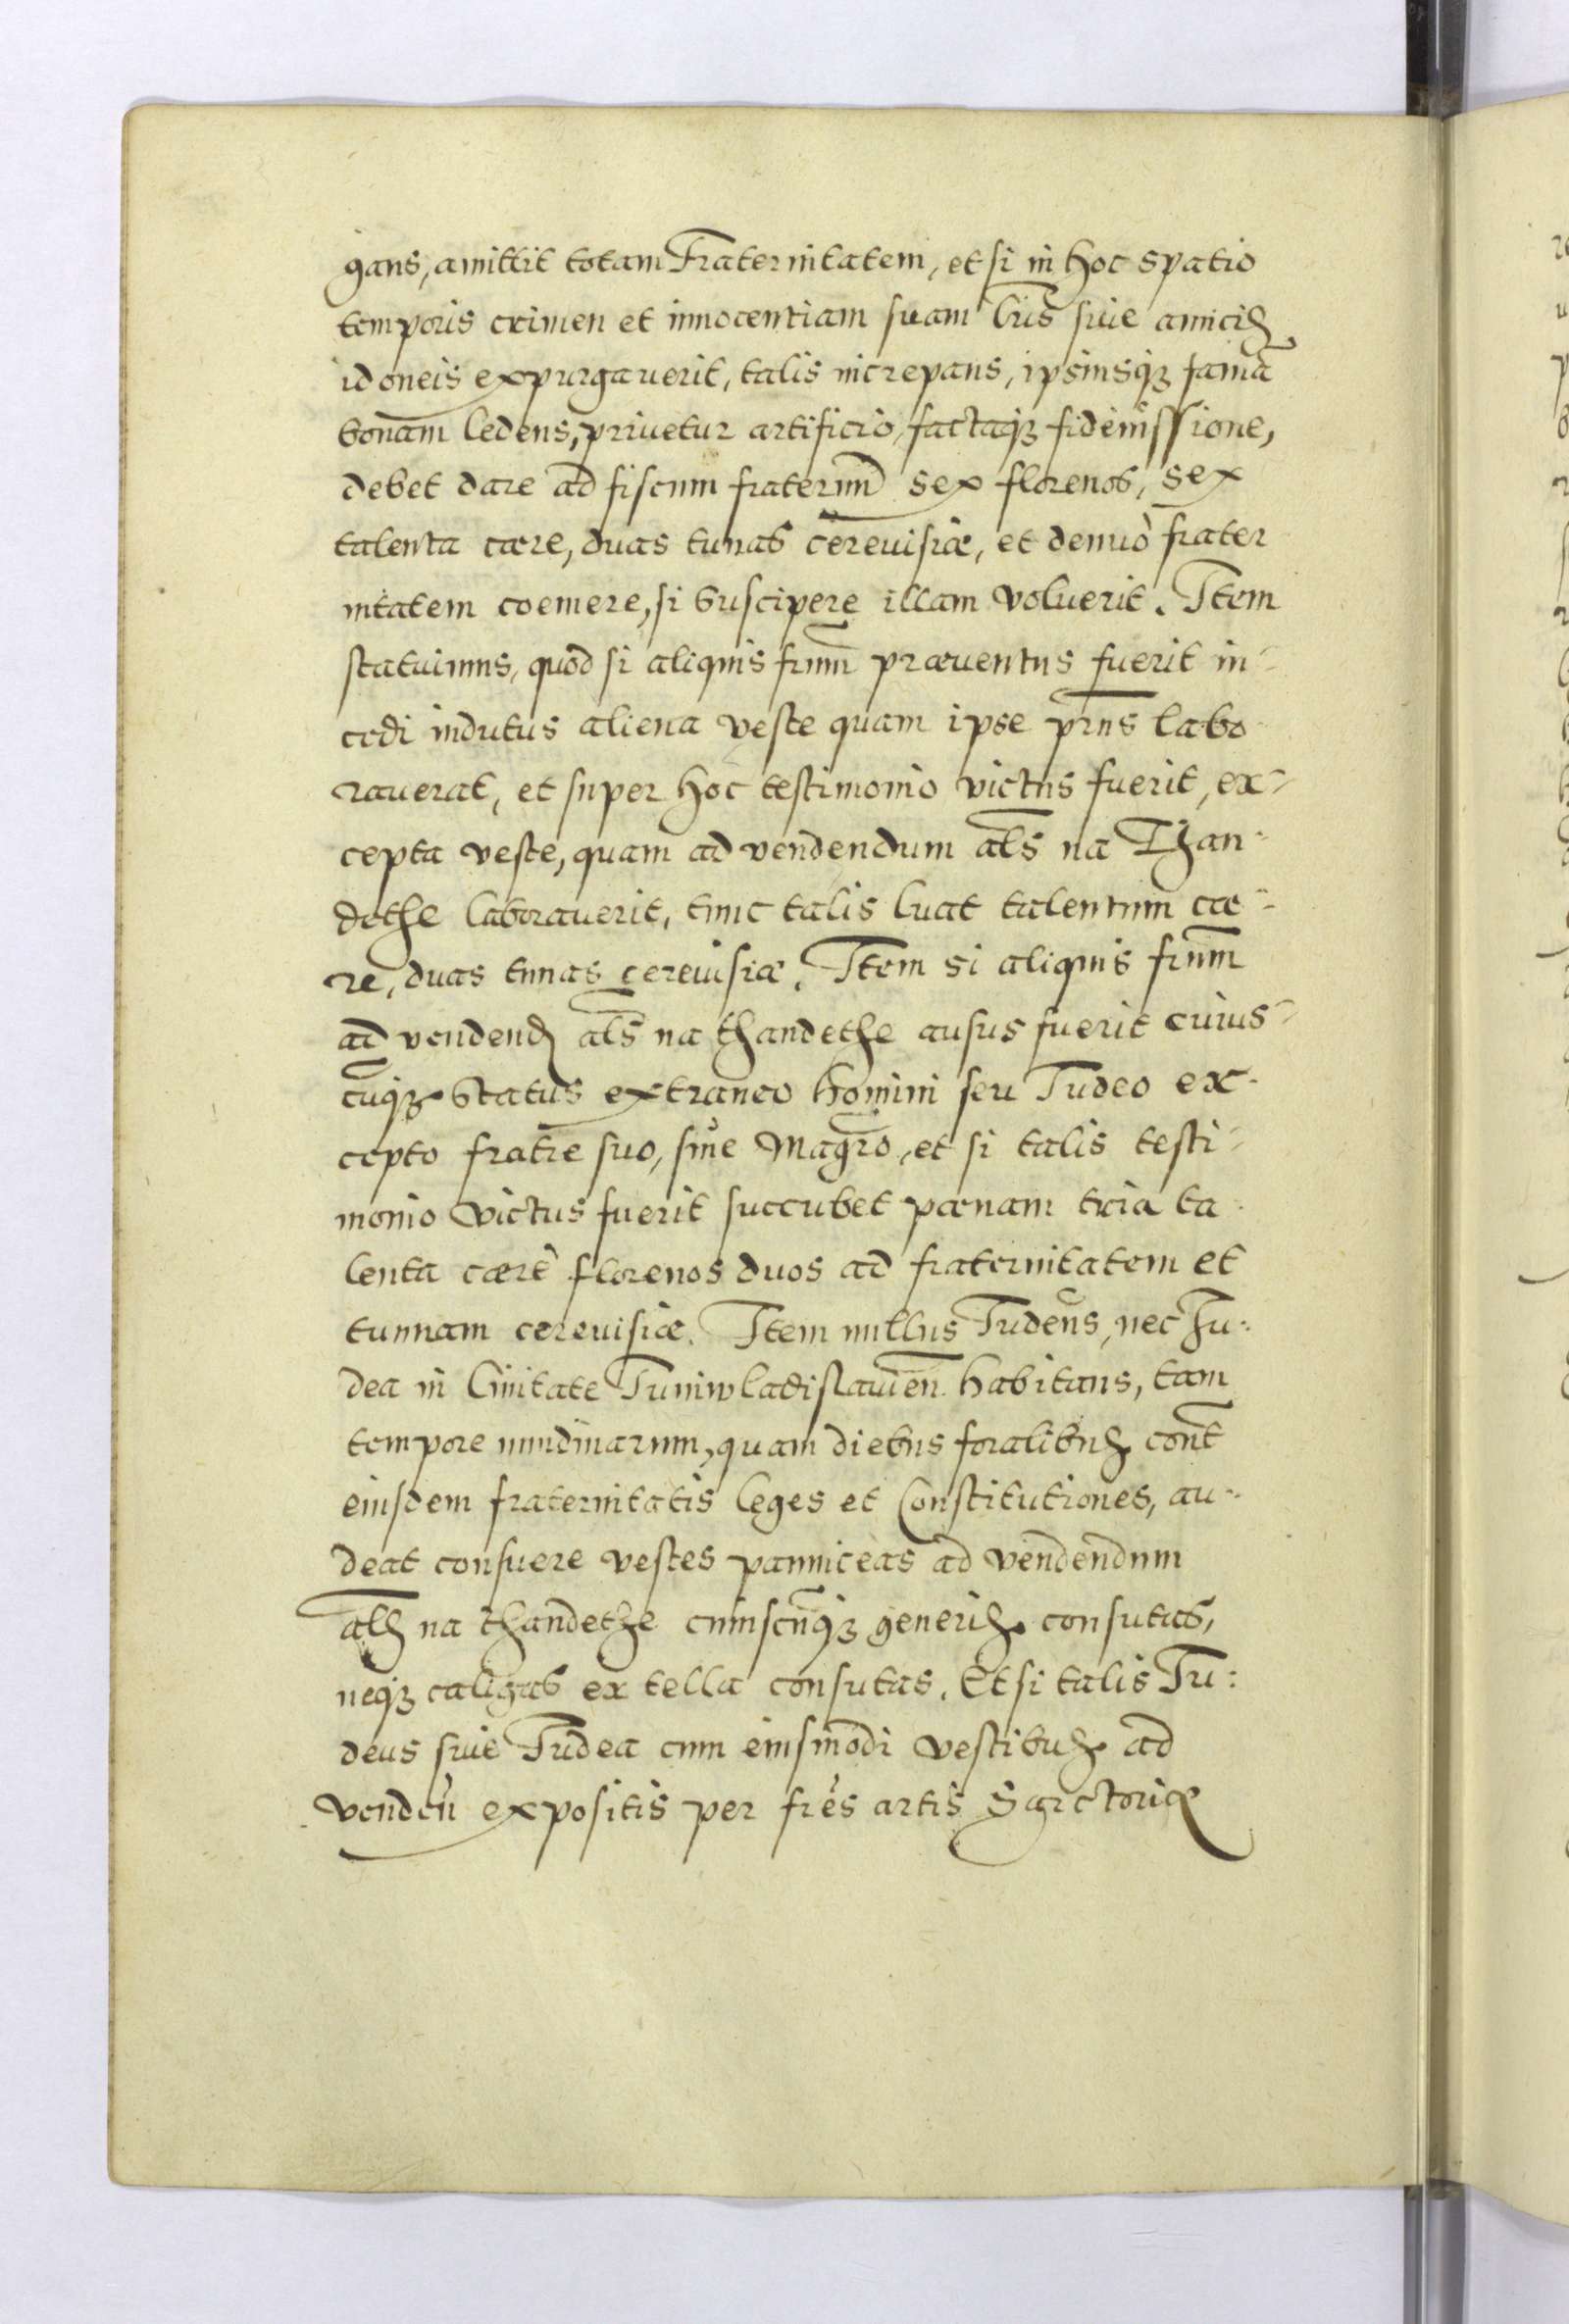 gans, amittit totam Fraternitatem, et si in hoc spatio
temporis crimen et innocentiam suam lris siue amicis
idoneis expurgauerit, talis increpans, ipsiusqꝫ famã
bonam ledens, priuetur artificio, factaqꝫ fideiussione,
debet dare ad fiscum fraternũ sex florenos, sex
talenta cære, duas tunas cereuisiæ, et denuò frater
nitatem coemere, si suscipere illam voluerit. Item
statuimus, quòd si aliquis frũm præuentus fuerit in-
cedi indutus aliena veste quam ipse prius labo
rauerat, et super hoc testimonio victus fuerit, ex-
cepta veste, quam ad vendendum als na Than-
dethe laborauerit, tunc talis luat talentum cæ-
re, duas tunas cereuisiæ. Item si aliquis frũm
ad vendend als na thandethe ausus fuerit cuius-
cũqꝫ status extraneo homini seu Iudeo ex-
cepto fratre suo, siue Magro, et si talis testi-
monio victus fuerit succubet pænam tria ta-
lenta cære florenos duos ad fraternitatem et
tunnam cereuisiæ. Item nullus Iudeus, nec Iu:
dea in Ciuitate Iuniwladislauień habitans, tam
tempore nundinarum, quam diebus foralibus cont
eiusdem fraternitatis leges et Constitutiones, au-
deat consuere vestes panniceas ad vendendum
als na thandethe cuiuscũqꝫ generis consutas,
neqꝫ caligas ex tella consutas. Et si talis Iu:
deus siue Iudea cum eiusmodi vestibus ad
venden expositis per fres artis Sarctoriæ